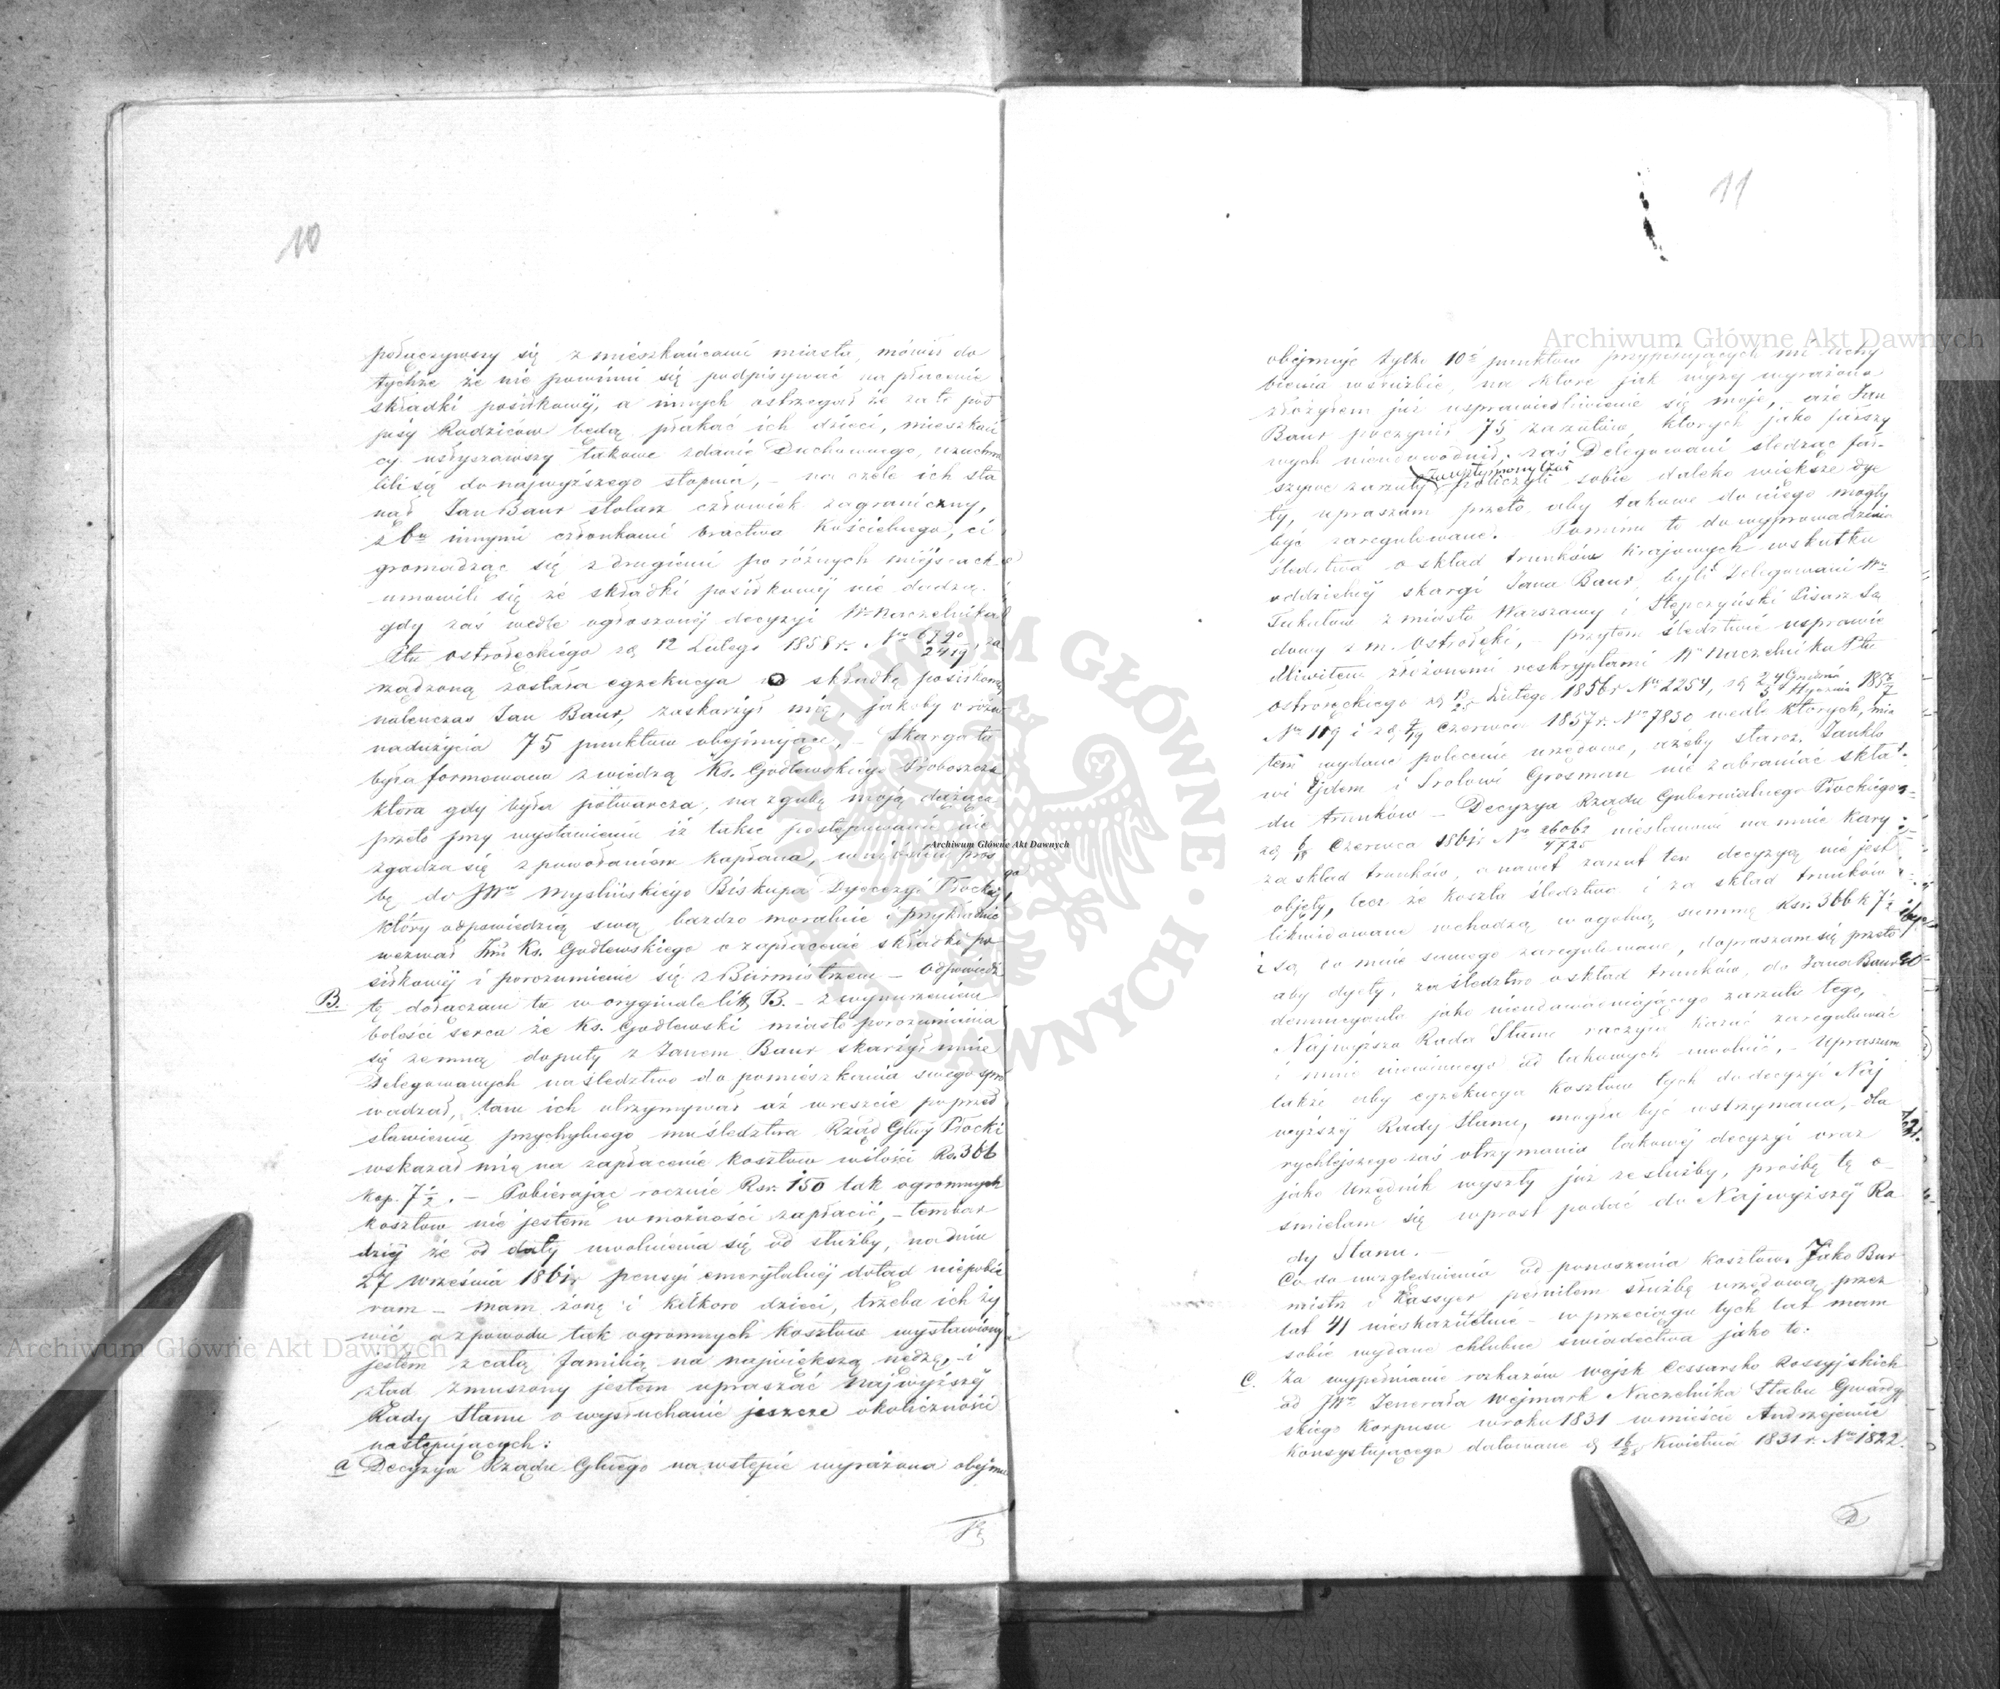 10
połączywszy się z mieszkańcami miasta, mówił do
tychże że nie powinni się podpisywać na płacenie
składki posiłkowéj, a innych ostrzegał że za te pod
pisy Rodziców będą płakać ich dzieci, mieszkań
cy usłyszawszy takowe zdanie Duchownego, uzuchwa
lili się do najwyższego stopnia, – na czele ich sta
nął Jan Baur stolarz człowiek zagraniczny,
z 6u innymi członkami bractwa Kościelnego, ci
gromadząc się z drugiemi po różnych miejscach
umówili się że składki posiłkowéj nie dadzą.
gdy zaś wedle ogłoszonéj decyzyi Wo Naczelnika
Ptu Ostrołęckiego zd 12 Lutego 1858 r. No 6790/2419, za
rządzoną została egzekucya o składkę posiłkową
naówczas Jan Baur, zaskarżył mię, jakoby o różne
nadużycia 75 punktów obejmujące, – Skarga ta
była formowana z wiedzą Ks. Godlewskiego Proboszcza
która gdy była potwarcza, na zgubę moją dążąca
przeto przy wystawieniu iż takie postępowanie nie
zgadza się z powołaniem kapłana, wniosłem proś
bę do JWo Myślińskiego Biskupa Dyecezyi Płockiéj
który odpowiedzią swą bardzo moralnie i przykładnie
wezwał Ks. Godlewskiego o zapłacenie składki po
siłkowéj i porozumienie się z Burmistrzem – Odpowiedź
B. tę dołączam tu w oryginale lit. B. – z wynurzeniem
boleści serca że Ks. Godlewski miasto porozumienia
się zemną doputy z Janem Baur skarżył mnie
Delegowanych na śledztwo do pomieszkania swego spro
wadzał, tam ich utrzymywał aż wreszcie po przed
stawieniu przychylnego mu śledztwa Rząd Glny Płocki
wskazał mię na zapłacenie kosztów w ilości Rs. 366
kop. 7½. – Pobierając rocznie Rsr. 150 tak ogromnych
kosztów nie jestem w możności zapłacić, – tembar
dziéj że od daty uwolnienia się od służby, na dniu
27 Września 1861r pensyi emerytalnéj dotąd niepobie
ram – mam żonę i kilkoro dzieci, trzeba ich ży
wić a z powodu tak ogromnych kosztów wystawiony
jestem z całą familią na największą nędzę, – i
ztąd zmuszony jestem upraszać Najwyższéj
Rady Stanu o wysłuchanie jeszcze okoliczności
następujących:
a Decyzya Rządu Glnego na wstępie wyrażona obejmu
11
obejmuje tylko 10é punktów przypisujących mi uchy
bienia w służbie, na które jak wyżej wyrażono
złożyłem już usprawiedliwienie się moje, – aże Jan
Baur poczynił 75 zarzutów których jako fałszy
wych nieudowodnił, zaś Delegowani śledząc fał-
szywe zarzuty policzyli sobie daleko większe dye
ty, upraszam przeto aby takowe do niego mogły
być zaregulowane. – Pomimo to do wyprowadzenia
śledztwa o skład trunków krajowych wskutku
oddzielnéj skargi Jana Baur, byli Delegowani Wn
z miasta Warszawy i Stępczyński Pisarz Są
dowy z m. Ostrołęki, – przytem śledztwie usprawie
dliwiłem złożonemi reskryptami Wo Naczelnika Ptu
Ostrołęckiego zd 13/25 Lutego 1856r No 2254, zd 24 Grudnia/5 Stycznia 1856/7
No 119 i zd 7/19 Czerwca 1857r. No 7830 wedle których, mia
łem wydane polecenie urzędowe, ażeby staroz. Jankló
wi Ejdem i Srolowi Grosman nie zabraniać skła
du trunków – Decyzya Rządu Gubernialnego Płockiego
zd 6/18 Czerwca 1861r No 26062/4725 niestanowi na mnie kary
za skład trunków, a nawet zarzut ten decyzyą nie jest
objęty, lecz że koszta śledztwa i za skład trunków
likwidowane wchodzą w ogólną summę Rsr. 366 k 7½
i są do mnie samego zaregulowane, dopraszam się przeto
aby dyety, za śledztwo o skład trunków, do Jana Baur
denuncyanta jako nieudowadniającego zarzutu tego,
Najwyższa Rada Stanu raczyła kazać zaregulować
i mnie niewinnego od takowych uwolnić, – Upraszam
także aby egzekucya kosztów tych do decyzyi Naj
wyższéj Rady Stanu, mogła być wstrzymana, – dla
rychlejszego zaś otrzymania takowéj decyzyi oraz
jako Urzędnik wyszły już ze służby, prośbę tę o–
śmielam się wprost podać do Najwyższéj Ra
dy Stanu. –
Co do uwzględnienia od ponoszenia kosztów. Jako Bur
mistrz i Kassyer pełniłem służbę urzędową przez
lat 41 nieskazitelnie – w przeciągu tych lat mam
sobie wydane chlubne świadectwa jako to:
C. Za wypełnianie rozkazów wojsk Cessarsko Rossyjskich
od JWo Jenerała Wejmark Naczelnika Sztabu Gwardyj
skiego Korpusu w roku 1831 w mieście Andrzejewie
konsystującego datowane d 16/28 Kwietnia 1831 r. No 1822.
D
Archiwum Główne Akt Dawnych
Archiwum Główne Akt Dawnych
Archiwum Główne Akt Dawnych
ARCHIWUM GŁÓWNE AKT DAWNYCH